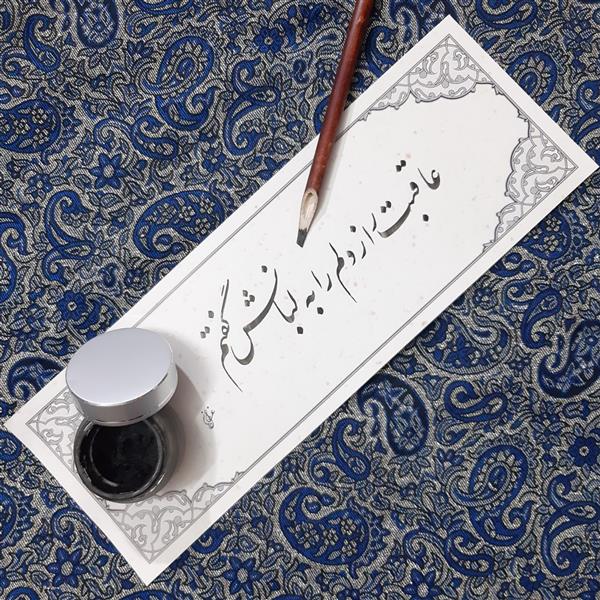 عاقبت راز دلم را به لبانش گفتم